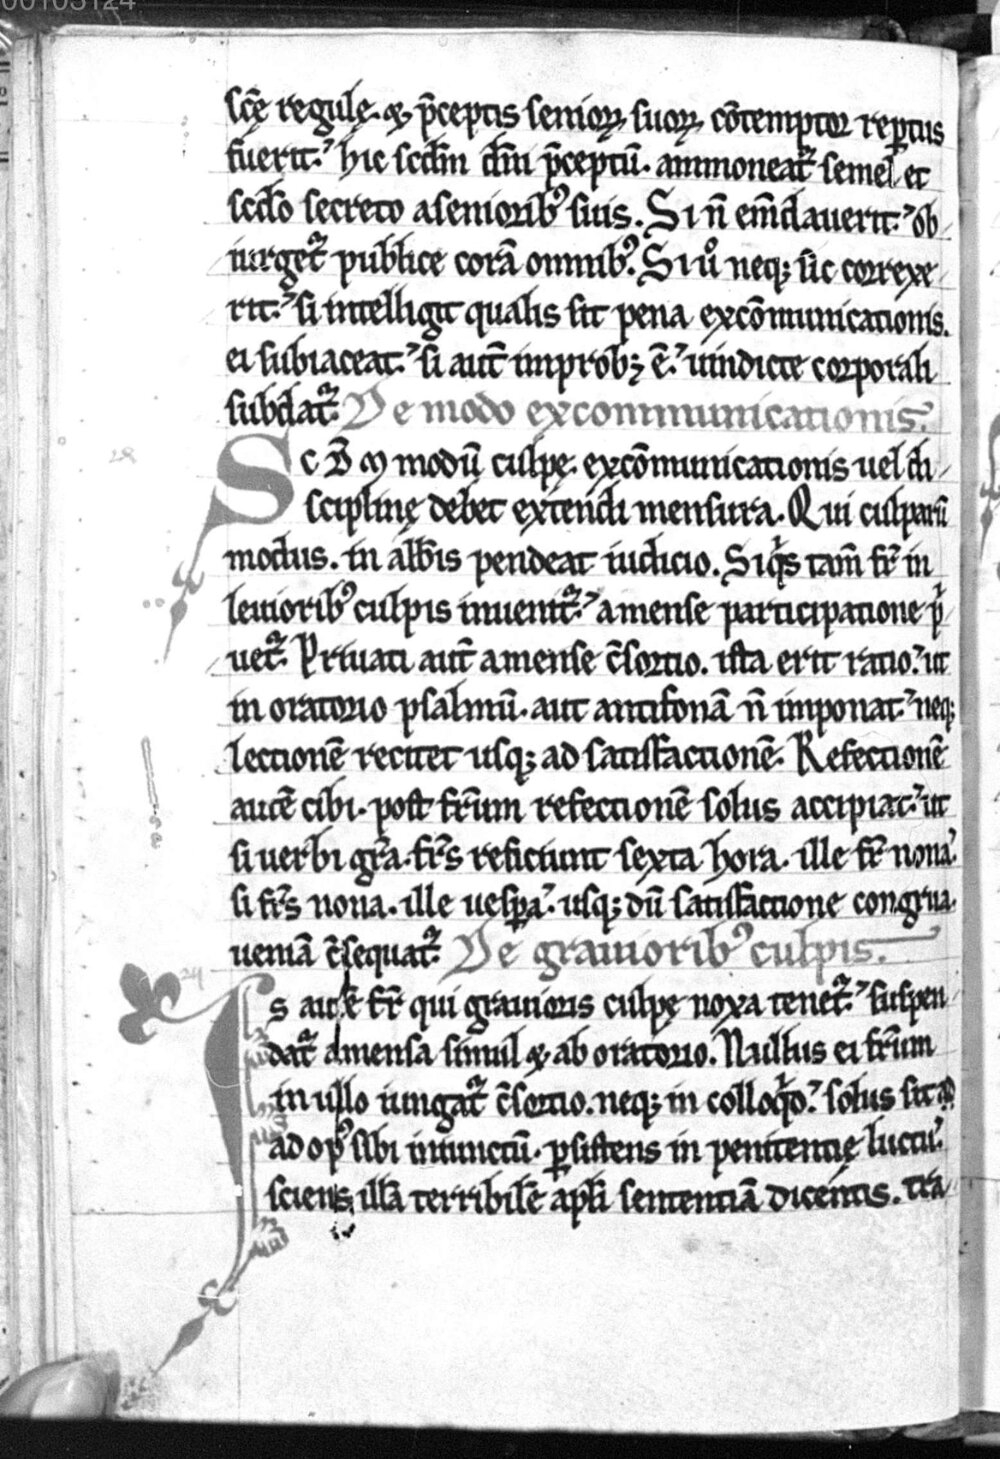 00103124
scē regulę. & p̄ceptis senioꝝ suoꝝ cōtemptor reꝑtus
fuerit. hic scd̄m dn̄i p̄ceptū. ammoneat᷑ semel et
scd̄o secreto aseniorib⁹ suis. Si n̄ em̄dauerit. ob
iurget᷑ publice corā omnib⁹. Si u̾o neq; sic correxe
rit. si intelligit qualis sit pena excōmunicationis.
ei subiaceat. si aut̄ improb; ē. uindicte corporali
subdat᷑. De modo excommunicationis.
28
ScD̄M modū culpę. excōmunicationis uel di
sciplinę debet extendi mensura. Qui culparū
modus. in abb̄is pendeat iudicio. Siqͥs tam̄ fr̄ in
leuiorib⁹ culpis inuenit᷑. amense participatione pͥ
uet᷑. Priuati aut̄ amense c̄sortio. ista erit ratio. ut
in oratorio psalmū. aut antifonā n̄ imponat. neq;
lectionē recitet usq; ad satisfactionē. Refectionē
autē cibi. post fr̄um refectionē solus accipiat. ut
si uerbi gr̄a. fr̄s reficiunt sexta hora. ille fr̄ nona.
si fr̄s nona. ille uesꝑa. usq; dū satisfactione congrua
ueniā c̄sequat᷑. De grauiorib⁹ culpis.
Is autē fr̄ qui grauioris culpę noxa tenet᷑. suspen
dat᷑ amensa simul & ab oratorio. Nullus ei fr̄um
in ullo iungat᷑ c̄sortio. neq; in colloqͥo. solus sit
ad op⁹ sibi iniunctū. ꝑsistens in penitentię luctu.
sciens illā terribilē apl̄i sententiā dicentis. tra